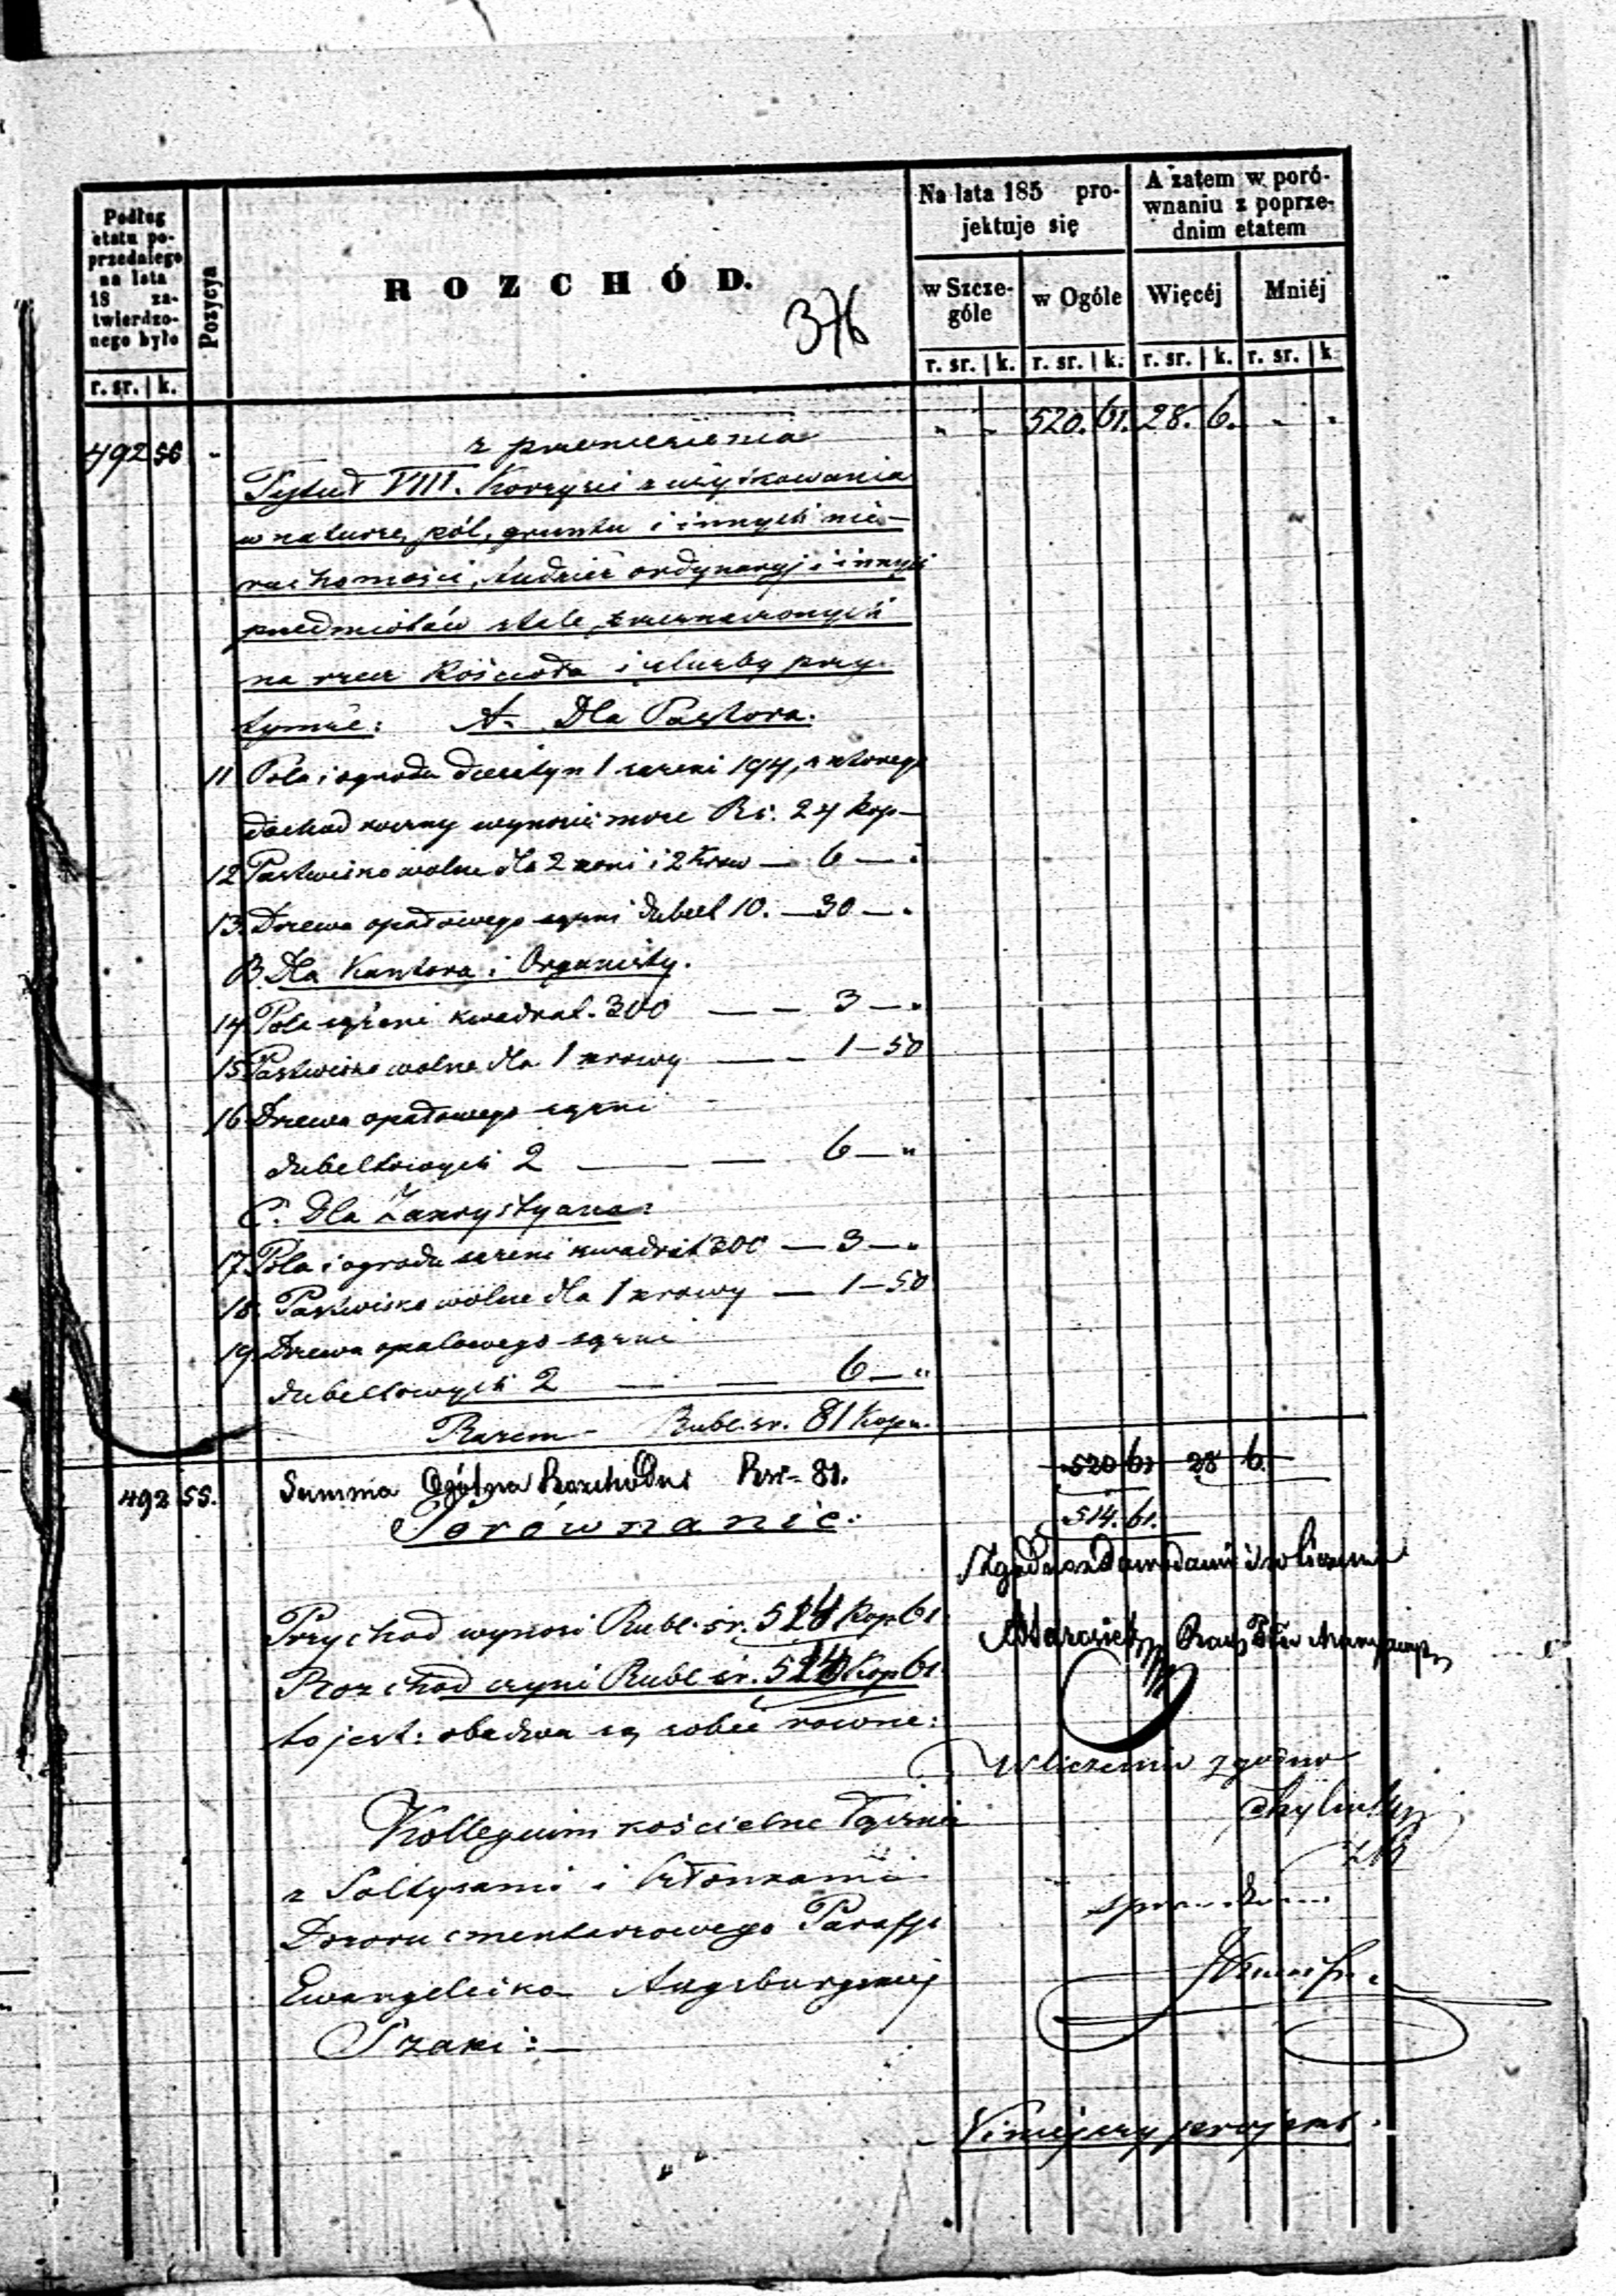 Podług etatu poprzedniego na lata 18 zatwierdzonego było
r. sr. | k.
Pozycya
ROZCHÓD.
376
Na lata 185 projektuje się
w Szczególe
r. sr. | k.
w Ogóle
r. sr. | k.
A zatem w porównaniu z poprzednim etatem
Więcéj
r. sr. | k.
Mniéj
r. sr. | k.
492 56 - z przeniesienia " - 520. 61. 28. 6. - "
Tytuł VIII. Korzyści z użytkowania
w naturze, pól, gruntu i innych nie-
ruchomości, tudzież ordynaryj i innych
przedmiotów stale przeznaczonych
na rzecz Kościoła i służby przy
tymże: A. Dla Pastora.
11 Pola i ogrodu diesetyn 1 sążeni 194, z którego
dochod roczny wynosić może Rs. 24 kop -
12 Pastwisko wolne dla 2 koni i 2 krów - 6 - "
13. Drzewa opałowego sążni dubelt 10. - 30 - "
B. Dla Kantora i Organisty.
14. Pola sążeni kwadrat. 300 - - 3 - "
15 Pastwisko wolne dla 1 krowy - - 1 - 50
16 Drzewa opałowego sążni
dubeltowych 2 - - 6 - "
C. Dla Zakrystyana:
17 Pola i ogrodu sążeni kwadrat 300 - 3 - "
18. Pastwisko wolne dla 1 krowy - 1 - 50
19. Drzewa opałowego sążni
dubeltowych 2 - - 6 - "
Razem - Rubl. sr. 81 Kop ".
492 55. Summa Ogólna Rozchodu Rsr - 81. 520 61 28 6.
514. 61.
Porównanie:
Przychod wynosi Rubl. sr. 514 Kop 61.
Rozchod czyni Rubl sr. 514 Kop 61.
to jest: obadwa są sobie równe:
W liczeniu zgodno
Kollegium kościelne łącznie
z Sołtysami i Członkami
Dozoru cmentarzowego Parafji
Ewangelicko Augsburgskiej
Szaki: -
Niniejszy projekt